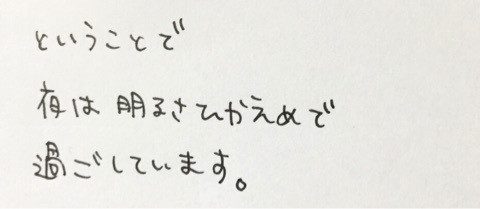 ということで
夜は明るさひかえめで
過ごしています。